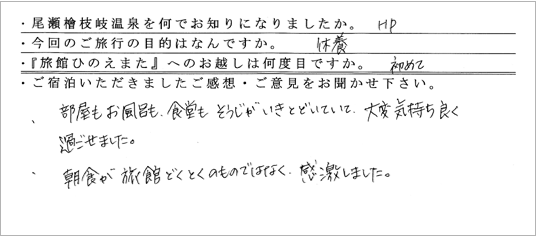 ・尾瀬檜枝岐温泉を何でお知りになりましたか。 HP
・今回のご旅行の目的はなんですか。 休養
・『旅館ひのえまた』へのお越しは何度目ですか。 初めて
・ご宿泊いただきましたご感想・ご意見をお聞かせ下さい。
、部屋もお風呂も、食堂も そうじがいきとどいていて、大変気持ち良く
過ごせました。
、朝食が旅館どくとくのものではなく、感激しました。